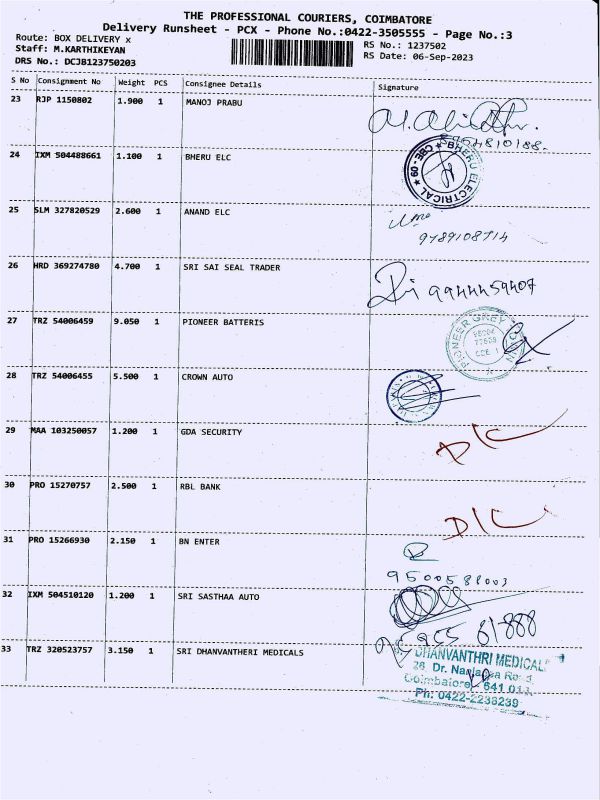 THE PROFESSIONAL COURIERS, COIMBATORE
Delivery Runsheet - PCX - Phone No.:0422-3505555 - Page No.:3
Route: BOX DELIVERY x
Staff: M.KARTHIKEYAN
DRS No.: DCJB123750203
RS No.: 1237502
RS Date: 06-Sep-2023
S No Consignment No Weight PCS Consignee Details Signature
23 RJP 1150802 1.900 1 MANOJ PRABU
24 IXM 504488661 1.100 1 BHERU ELC
BHERU ELECTRICAL ★ CBE-09 ★
25 SLM 327820529 2.600 1 ANAND ELC
9789108714
26 HRD 369274780 4.700 1 SRI SAI SEAL TRADER
9944459407
27 TRZ 54006459 9.050 1 PIONEER BATTERIS
PIONEER
28 TRZ 54006455 5.500 1 CROWN AUTO
29 MAA 103250057 1.200 1 GDA SECURITY
D/C
30 PRO 15270757 2.500 1 RBL BANK
D/C
31 PRO 15266930 2.150 1 BN ENTER
9500588003
32 IXM 504510120 1.200 1 SRI SASTHAA AUTO
33 TRZ 320523757 3.150 1 SRI DHANVANTHERI MEDICALS
DHANVANTHRI MEDICAL
28 Dr.
Coimbatore 641
Ph: 0422-2238239